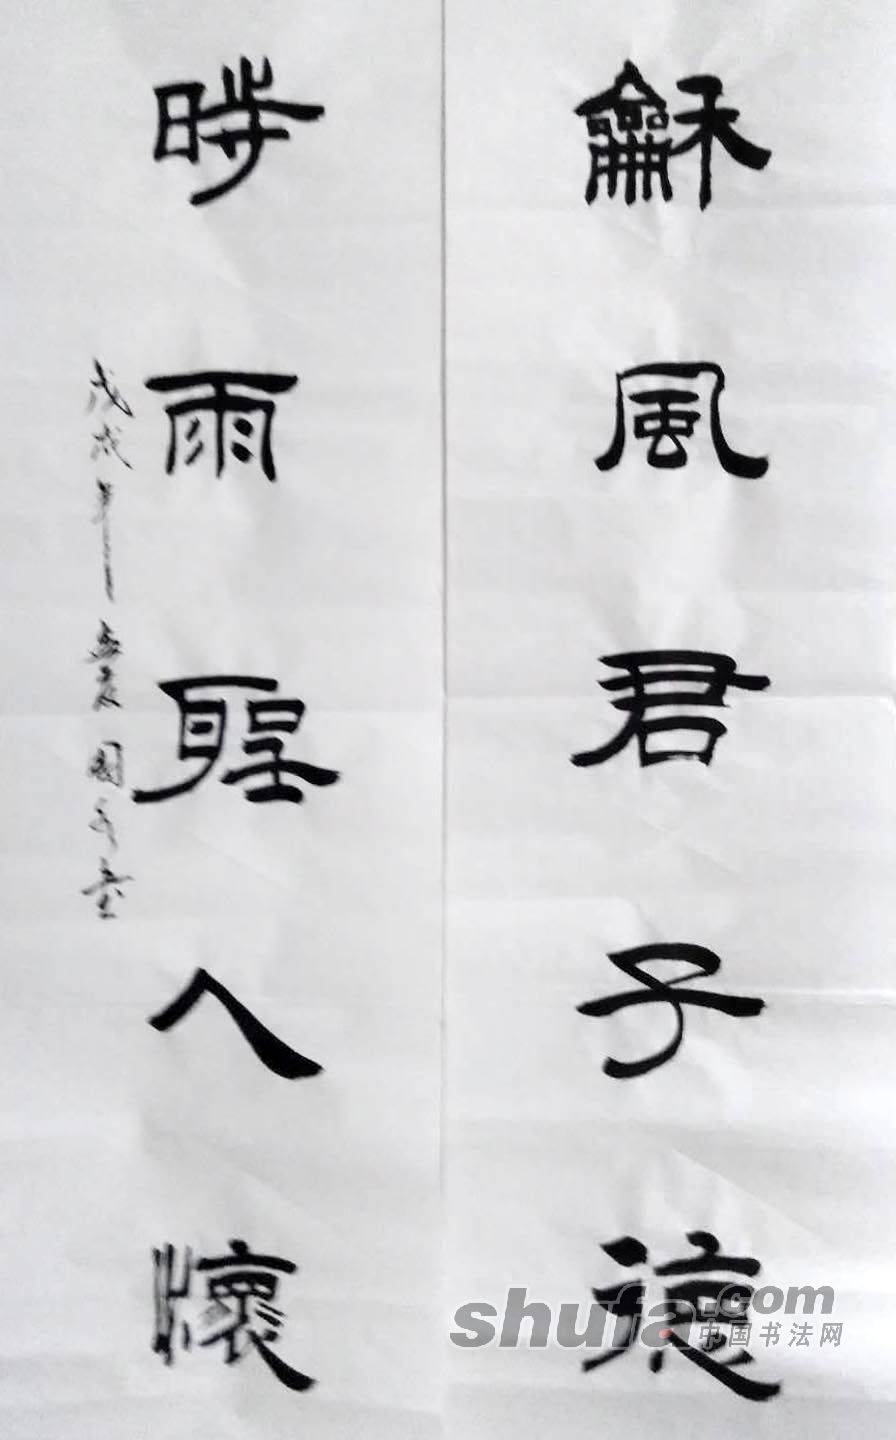 龢風君子德
時雨聖人懷
戊戌年
shufa.com
中国书法网